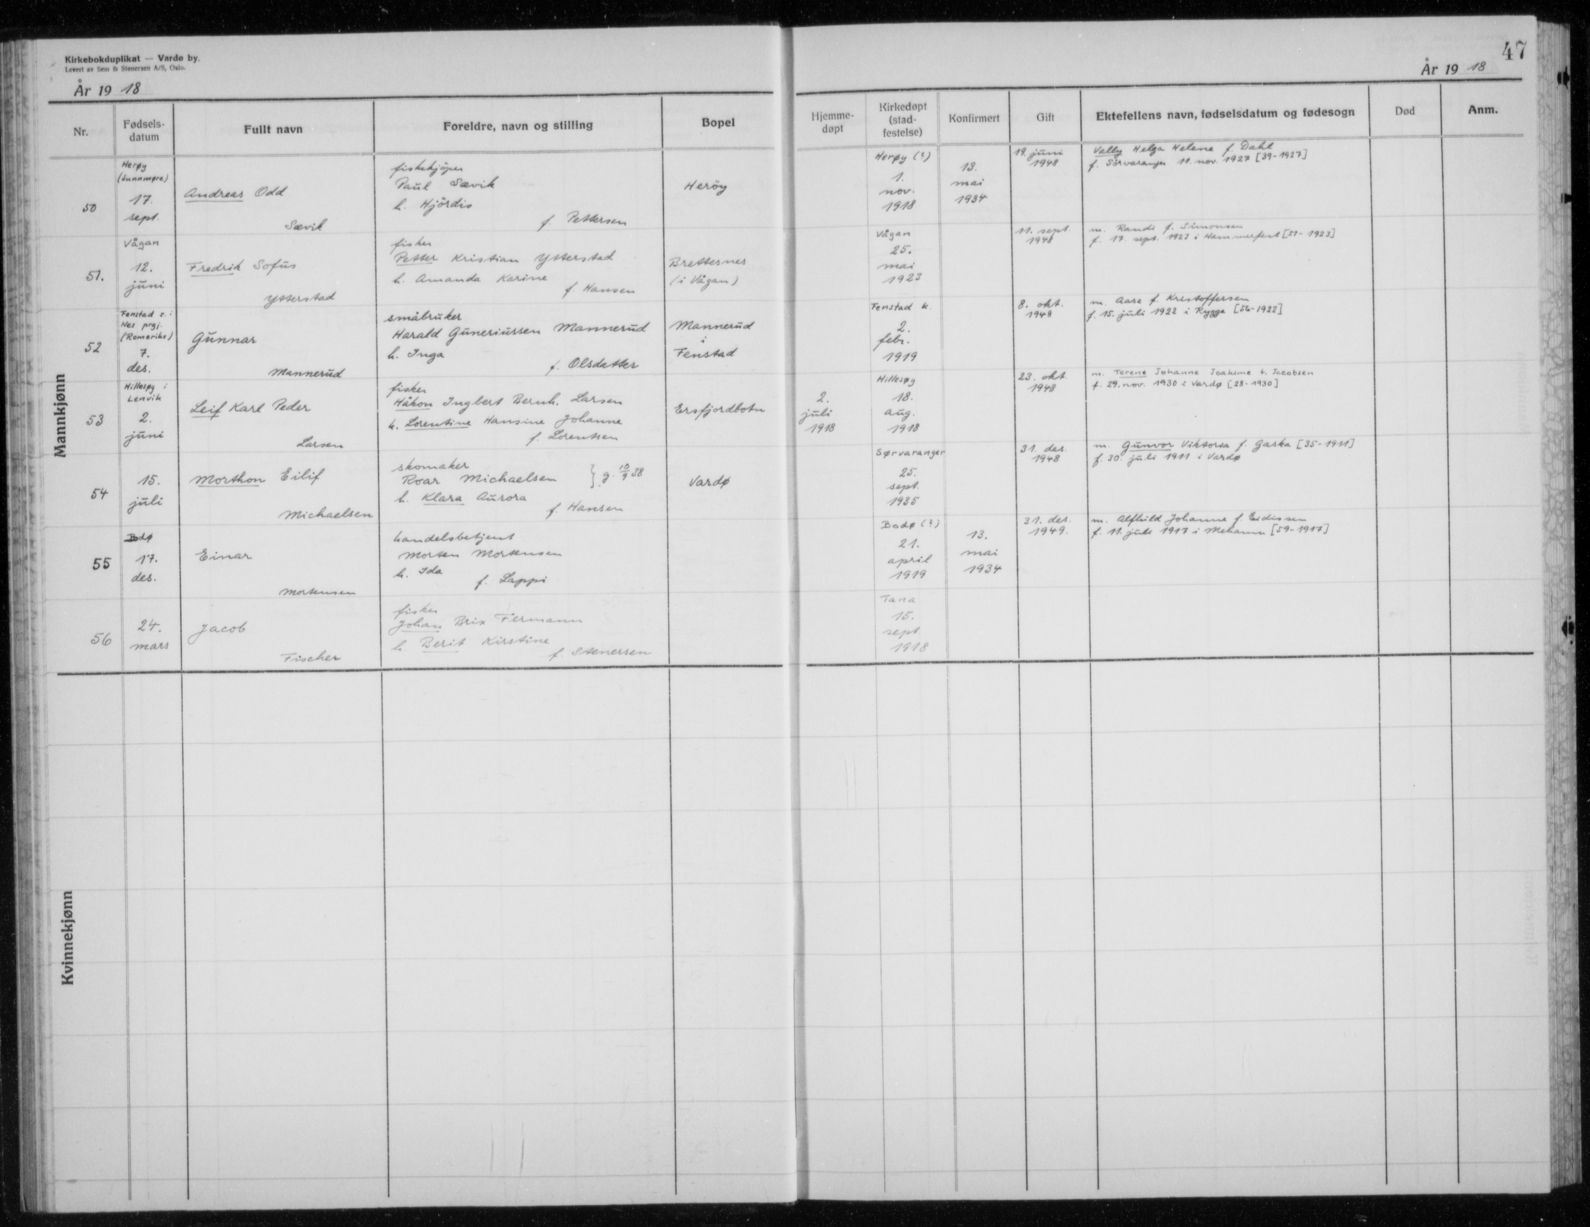 Kirkebokduplikat — Vardø by.
Levert av Sem & Stenersen A/S, Oslo.
År 19 18
Nr.
Fødsels-
datum
Fullt navn
Foreldre, navn og stilling
Bopel
Mannkjønn
Herøy
(Sunnmøre)
17.
sept.
50
Andreas Odd
Sævik
fiskekjøper
Paul Sævik
h. Hjördis
f Pettersen
Heröy
Vågan
12.
juni
51.
Fredrik Sofus
Ytterstad
fisker
Petter Kristian Ytterstad
h. Amanda Karine
f Hansen
Bretternes
(i Vågan)
Fenstad s. i
Nes prgj.
(Romerike)
7.
des.
52
Gunnar
Mannerud
småbruker
Harald Guneriussen Mannerud
h. Inga
f. Olsdatter
Mannerud
i
Fenstad
Hillesøy i
Lenvik
2.
juni
53
Leif Karl Peder
Larsen
fisker
Håkon Inglert Bernh. Larsen
h. Lorentine Hansine Johanne
f. Lorentsen
Ersfjordbotn
15.
juli
54
Morthon Eilif
Michaelsen
skomaker
Roar Michaelsen } g. 10/9 38
h. Klara Aurora
f. Hansen
Vardø
Bodø
17.
des.
55
Einar
Mortensen
handelsbetjent
Morten Mortensen
h. Ida
f. Lappi
24.
mars
56
Jacob
Fischer
fisker
Johan Brix Fermann
h Berit Kirstine
f. Stenersen
Kvinnekjønn
47
År 19 18
Hjemme-
døpt
Kirkedøpt
(stad-
festelse)
Konfirmert
Gift
Ektefellens navn, fødselsdatum og fødesogn
Død
Anm.
Herøy (?)
1.
nov.
1918
13.
mai
1934
19 juni
1948
Helga Helene f Dahl
f. Sörvaranger 11. nov. 1927 [39-1927]
Vågan
25.
mai
1923
11. sept
1948
m. Randi f. Simonsen
f. 17. sept. 1923 i Hammerfest [51-1923]
Fenstad k.
2.
febr.
1919
8. okt.
1948
m. Aase f. Kristoffersen
f. 15. juli 1922 i Rygge [56-1922]
2.
juli
1918
Hillesøy
18.
aug.
1918
23. okt
1948
m. Terene Johanne Joakime f. Jacobsen
f. 29. nov. 1930 i Vardø [28-1930]
Sørvaranger
25.
sept.
1935
31. des.
1948
m. Gunvor Viktoria f Gaska [35-1911]
f. 30. juli 1911 i Vardø
Bodø (?)
21.
april
1919
13.
mai
1934
31. des.
1949.
m. Alfhild Johanne f Eidissen
f. 11. juli 1917 i Mehamn [59-1917]
Tana
15.
sept
1918